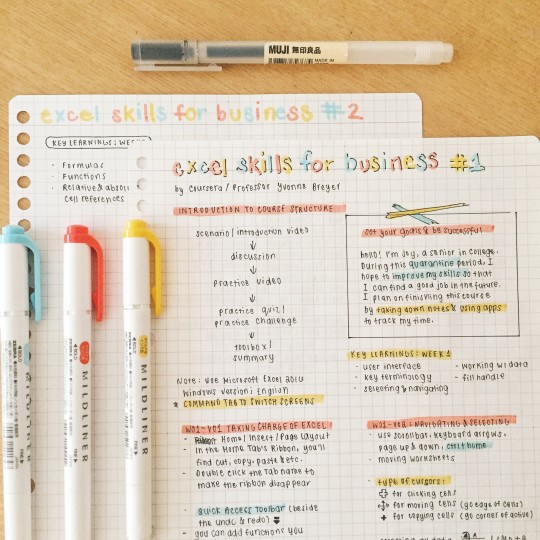 MUJI 無印良品
MADE IN
excel skills for business #2
KEY LEARNINGS: WEE
- Formulas
- Functions
- Relative & absolu
cell references
excel skills for business #1
by Coursera / Professor Yvonne Breyer
INTRODUCTION TO COURSE STRUCTURE
scenario/introduction video
↓
discussion
↓
practice video
↓
practice quiz/
practice challenge
↓
toolbox/
summary
Note: Use Microsoft Excel 2016
Windows version; English
* COMMAND TAB TO SWITCH SCREENS
set your goals & be successful
hello! I'm Joy, a senior in college.
During this quarantine period, I
hope to improve my skills so that
I can find a good job in the future.
I plan on finishing this course
by taking down notes & using apps
to track my time.
KEY LEARNINGS: WEEK 1
- user interface
- key terminology
- selecting & navigating
- working w/ data
- fill handle
W01-V01 TAKING CHARGE OF EXCEL
- Home / Insert / Page Layout
- In the Home Tab's Ribbon, you'll
find cut, copy, paste & etc.
- Double click the Tab name to
make the ribbon disappear
- Quick Access Toolbar (beside
the undo & redo)
- you can add functions you
W01-V02: NAVIGATING & SELECTING
- use scrollbar, keyboard arrows,
page up & down, ctrl home
- moving worksheets
type of cursors:
for clicking cells
for moving cells (go edge of cells)
+ for copying cells (go corner of active)
MILDLINER
MILDLINER
MILDLINER